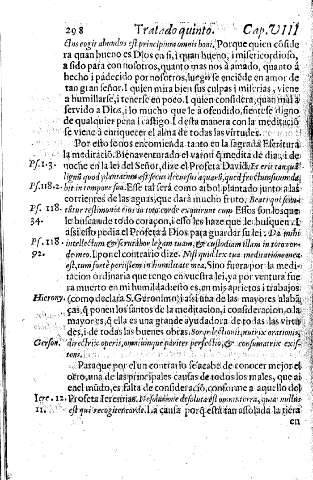 298 Tratado quinto. Cap. VIII
Porque quien cõside
ra quan bueno es Dios en si, i quan bueno, i misericordioso,
a sido para con nosotros, quanto mas nos à amado, quanto à
hecho i padecido por nosotros, luego se enciẽde en amor de
tan gran señor. I quien mira bien sus culpas i miserias, viene
a humillarse, i tenerse en poco. I quien considera, quan mal à
servido a Dios, i lo mucho que le a ofendido, sientese digno
de qualquier pena i castigo. I desta manera con la meditaciõ
se viene à enriquecer el alma de todas las virtudes.
Por esto se nos encomienda tanto en la sagrada Escritura
la meditaciõ. Bienaventurado el varon q̃ medita de dia, i de
Ps. 1. 3. noche en la lei del Señor, dize el Profeta David. Et erit tan quã
lignũ quod plantatum est secus decursus aquarũ, quod fructum suum da
Ps. 118. 2. bit in tempore suo. Este tal serà como arbol plantado junto a las
corrientes de las aguas, que darà mucho fruto. Beati qui scru-
Ps. 118. tantur testimonia eius in toto corde exquirunt eum Estos son los que
34. le buscan de todo coraçon, i esto es lo que haze que le busquen. I
assi esto pedia el Profeta à Dios para guardar su lei: Da mihi
Ps. 118 intellectum & scrutabor legem tuam, & custodiam illam in toto cor-
92. de meo. I por el contrario dize. Nisi quod lex tua meditatio mea
est, tum forte perissem in humilitate mea, Sino fuera por la medita
cion ordinaria que tengo en vuestra lei, ya por ventura fue
ra muerto en mi humildad: esto es, en mis aprietos i trabajos
Hierony. (como declara S. Geronimo) i assi una de las mayores alabã
ças, q̃ ponen los santos de la meditacion, i consideracion, o la
mayor es, q̃ ella es una grande ayudadora de todas las virtu
des, i de todas las buenas obras. Soror lectionis, nutrix orationis,
Gerson. directrix operis, omniumque pariter perfectio, & consumatrix exis-
tens.
Para que por el un contrario se acabe de conocer mejor el
otro, una de las principales causas de todos los males, que ai
en el mũdo, es falta de consideraciõ, conforme a aquello del
Iere. 12. Profeta Ieremias. Desolatione desolata est omnis terra, quia nullus
11. est qui recogitet corde. La causa porq̃ està tan assolada la tierra
en